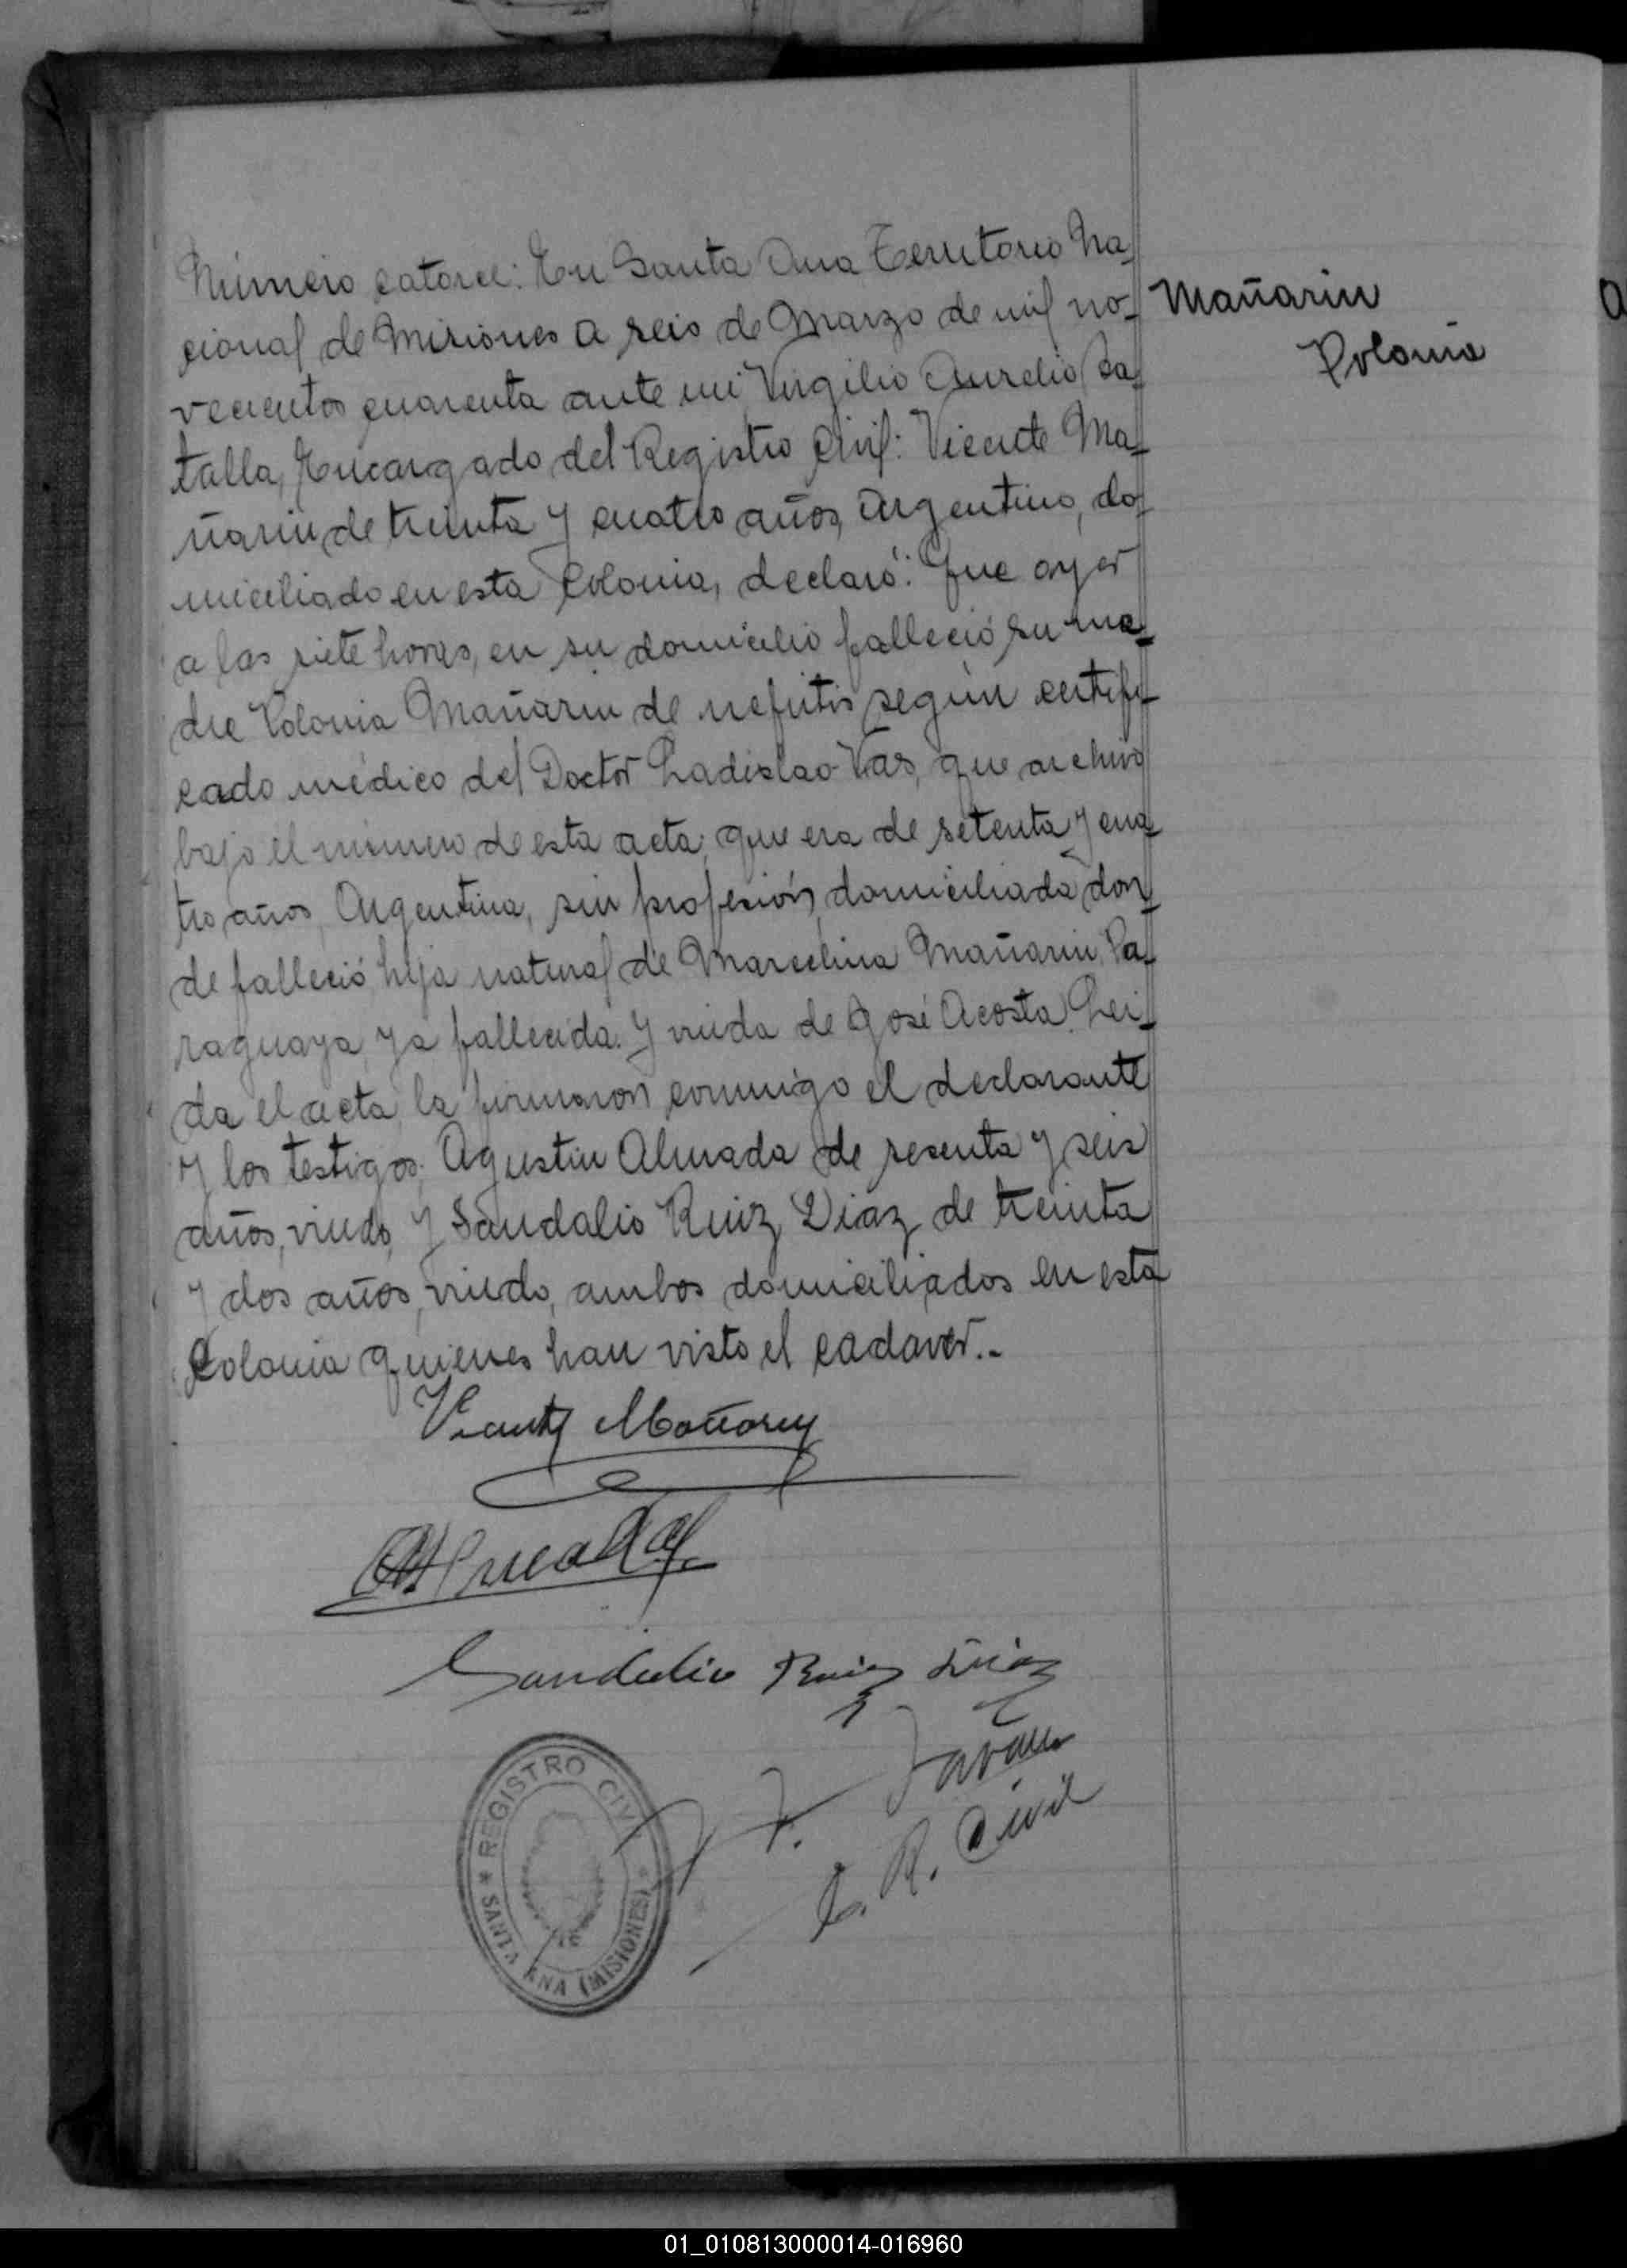 Número catorce: En Santa Ana Territorio Na-
cional de Misiones a seis de Marzo de mil no-
vecientos cuarenta ante mi Virgilio Aurelio Ba-
talla, Encargado del Registro Civil: Vicente Ma-
Mañarin
Polonia
ñarin de treinta y cuatro años, Argentino, do-
miciliado en esta Colonia, declaró: Que ayer
a las siete horas, en su domicilio falleció su ma-
dre Polonia Mañarin de nefritis según certifi-
cado médico del Doctor Ladislao Vas, que archivo
bajo el número de esta acta; que era de setenta y cua-
tro años, Argentina, sin profesión, domiciliada don-
de falleció, hija natural de Marcelina Mañarin, Pa-
raguaya, ya fallecida. Y viuda de José Acosta. Lei-
da el acta, la firmaron conmigo el declarante
y los testigos: Agustin Almada de sesenta y seis
años, viudo, y Sandalio Ruiz Diaz de treinta
y dos años, viudo, ambos domiciliados en esta
Colonia quienes han visto el cadaver.-
Vicente Mañarin
Almada
Sandalio Ruiz Diaz
E. R. Civil
REGISTRO CIVIL
* SANTA ANA (MISIONES) *
01_010813000014-016960